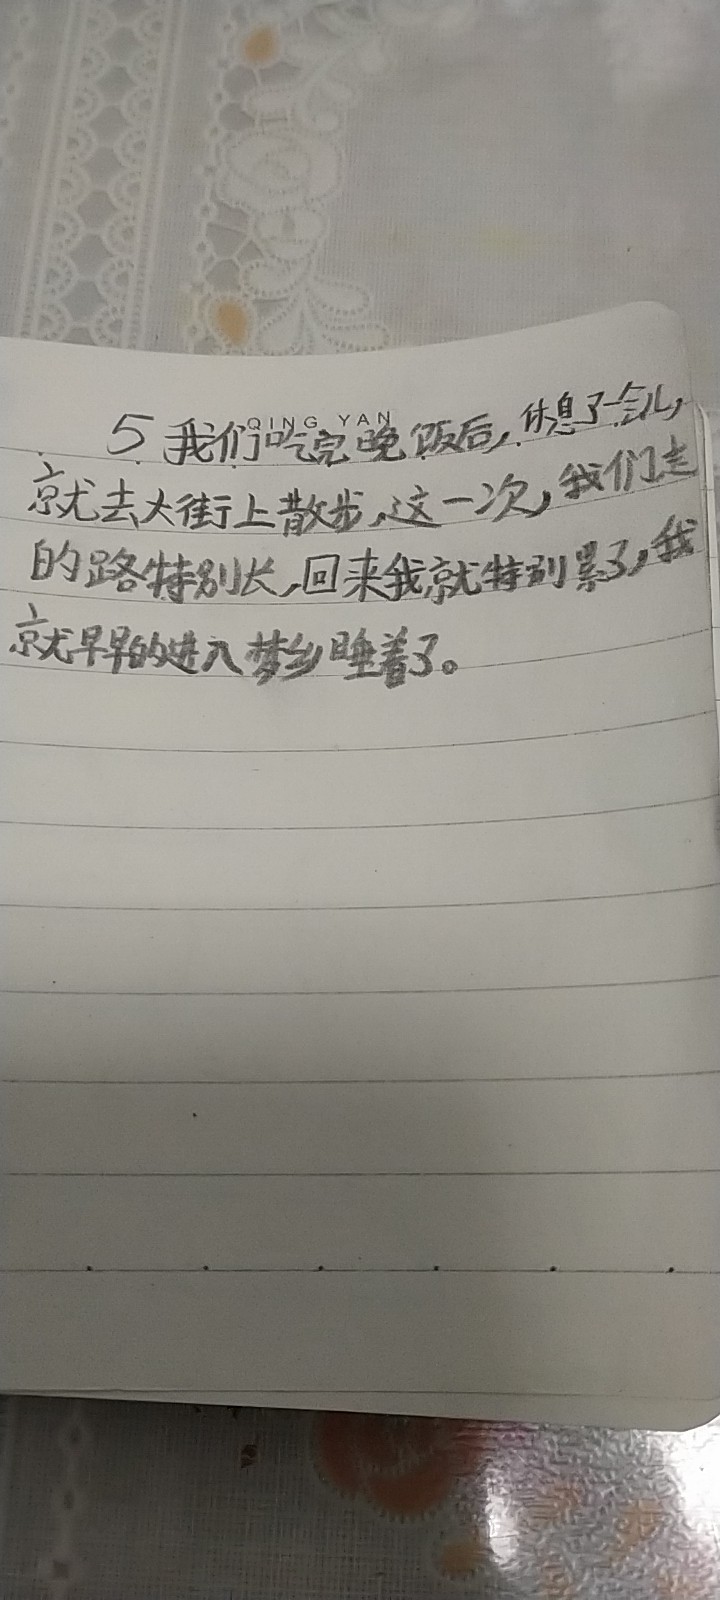 QING YAN
5 我们吃完晚饭后,休息了一会儿,
就去大街上散步,这一次,我们走
的路特别长,回来我就特别累了,我
就早早的进入梦乡睡着了。